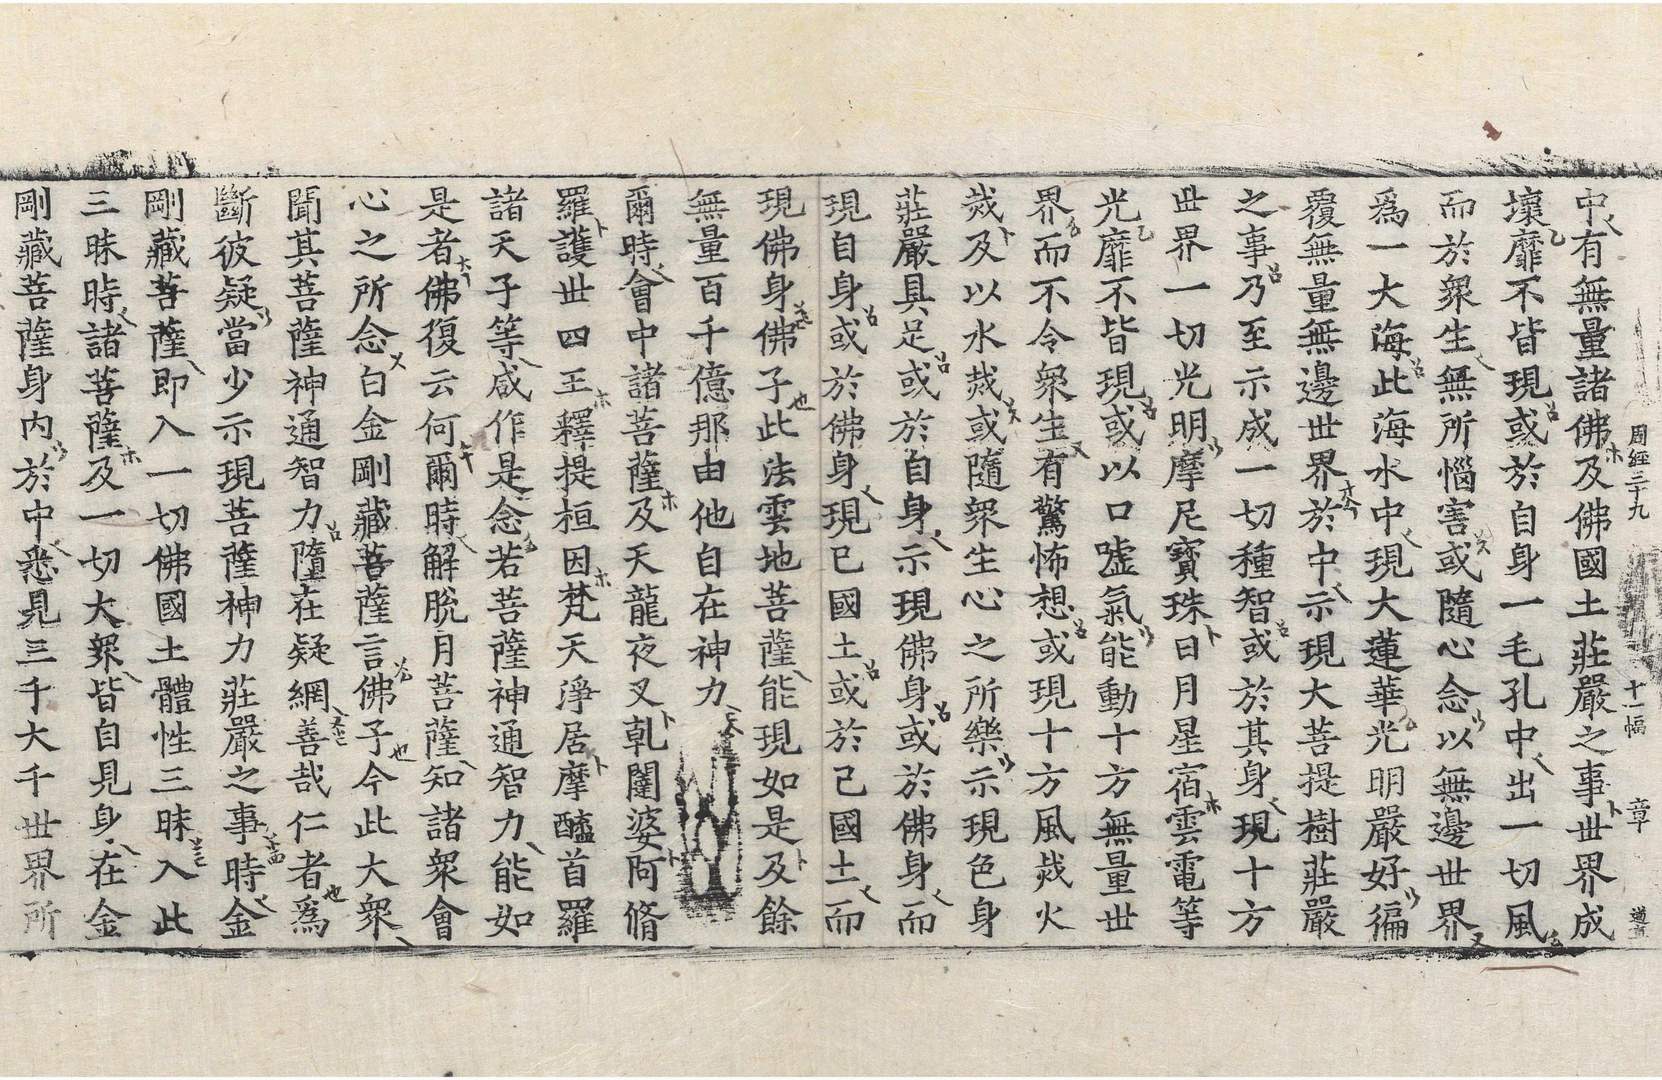 周經三十九 十一幅 章
中有無量諸佛及佛國土莊嚴之事世界成
壞靡不皆現或於自身一毛孔中出一切風
而於衆生無所惱害或隨心念以無邊世界
爲一大海此海水中現大蓮華光明嚴好徧
覆無量無邊世界於中示現大菩提樹莊嚴
之事乃至示成一切種智或於其身現十方
世界一切光明摩尼寶珠日月星宿雲電等
光靡不皆現或以口噓氣能動十方無量世
界而不令衆生有驚怖想或現十方風烖火
烖及以水烖或隨衆生心之所樂示現色身
莊嚴具足或於自身示現佛身或於佛身而
現自身或於佛身現已國土或於已國土而
現佛身佛子此法雲地菩薩能現如是及餘
無量百千億那由他自在神力
爾時會中諸菩薩及天龍夜叉乹闥婆阿脩
羅護世四王釋提桓因梵天淨居摩醯首羅
諸天子等咸作是念若菩薩神通智力能如
是者佛復云何爾時解脫月菩薩知諸衆會
心之所念白金剛藏菩薩言佛子今此大衆
聞其菩薩神通智力墮在疑網善哉仁者爲
斷彼疑當少示現菩薩神力莊嚴之事時金
剛藏菩薩即入一切佛國土體性三昧入此
三昧時諸菩薩及一切大衆皆自見身在金
剛藏菩薩身內於中悉見三千大千世界所